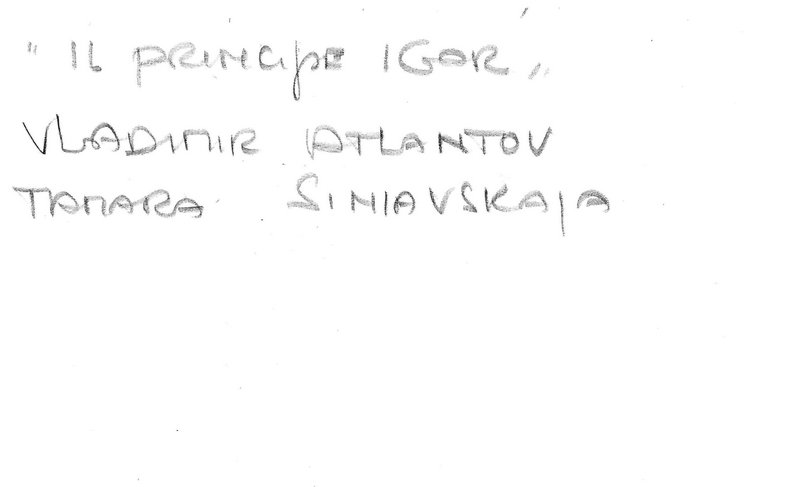 " IL PRINCIPE IGOR „
VLADIMIR ATLANTOV
TAMARA SINIAVSKAJA